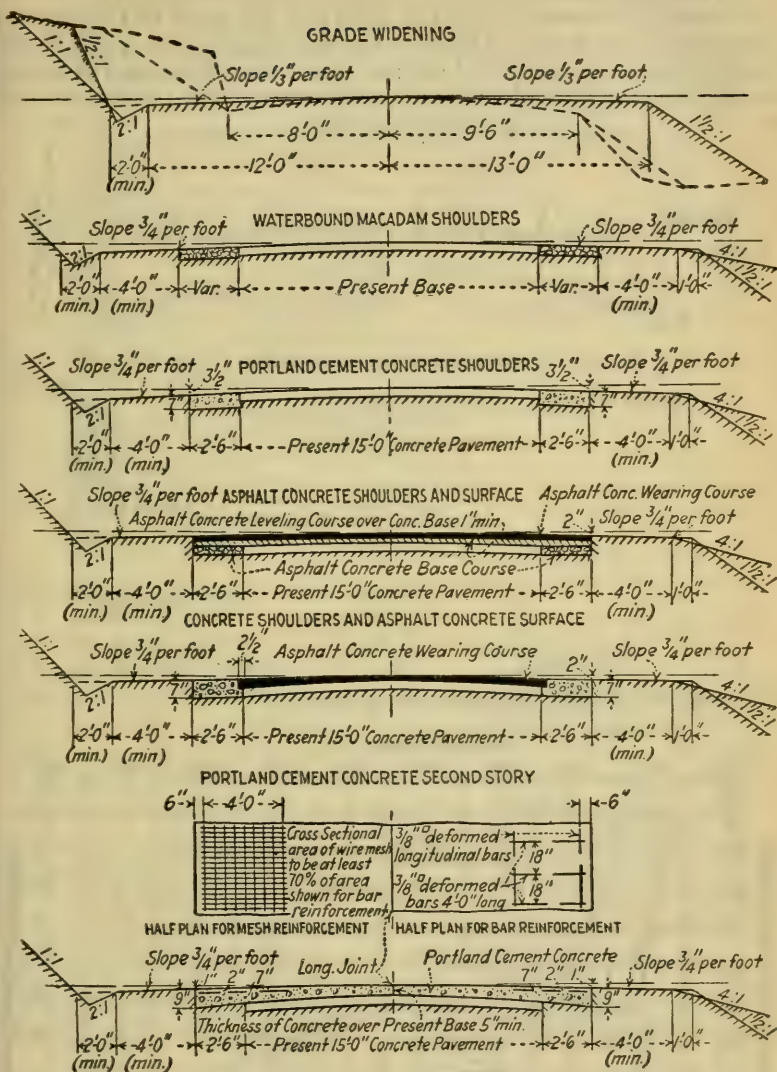 GRADE WIDENING
1:1 1/2:1 Slope 1/3" per foot Slope 1/3" per foot
2:1 8'-0" 9'-6" 1 1/2:1
2'-0" 12'-0" 13'-0"
(min.)
WATERBOUND MACADAM SHOULDERS
1:1 Slope 3/4" per foot Slope 3/4" per foot
2:1 4:1 1 1/2:1
2'-0" 4'-0" Var. Present Base Var. 4'-0" 1'-0"
(min.) (min.) (min.)
PORTLAND CEMENT CONCRETE SHOULDERS
1:1 Slope 3/4" per foot 3 1/2" 3 1/2" Slope 3/4" per foot
2:1 7" 7" 4:1 1 1/2:1
2'-0" 4'-0" 2'-6" Present 15'-0" Concrete Pavement 2'-6" 4'-0" 1'-0"
(min.) (min.) (min.)
Slope 3/4" per foot ASPHALT CONCRETE SHOULDERS AND SURFACE Asphalt Conc. Wearing Course
1:1 Asphalt Concrete Leveling Course over Conc. Base 1" min. 2" Slope 3/4" per foot
2:1 Asphalt Concrete Base Course 4:1 1 1/2:1
2'-0" 4'-0" 2'-6" Present 15'-0" Concrete Pavement 2'-6" 4'-0" 1'-0"
(min.) (min.) (min.)
CONCRETE SHOULDERS AND ASPHALT CONCRETE SURFACE
1:1 Slope 3/4" per foot 2 1/2" Asphalt Concrete Wearing Course 2" Slope 3/4" per foot
2:1 7" 7" 4:1 1 1/2:1
2'-0" 4'-0" 2'-6" Present 15'-0" Concrete Pavement 2'-6" 4'-0" 1'-0"
(min.) (min.) (min.)
PORTLAND CEMENT CONCRETE SECOND STORY
6" 4'-0" 6"
Cross Sectional
area of wire mesh
to be at least
70% of area
shown for bar
reinforcement
3/8"□ deformed
longitudinal bars 18"
3/8"□ deformed
bars 4'-0" long 18"
HALF PLAN FOR MESH REINFORCEMENT HALF PLAN FOR BAR REINFORCEMENT
1:1 Slope 3/4" per foot Long. Joint Portland Cement Concrete Slope 3/4" per foot
2:1 9" 1" 2" 7" 7" 2" 1" 9" 4:1 1 1/2:1
Thickness of Concrete over Present Base 5" min.
2'-0" 4'-0" 2'-6" Present 15'-0" Concrete Pavement 2'-6" 4'-0" 1'-0"
(min.) (min.) (min.)